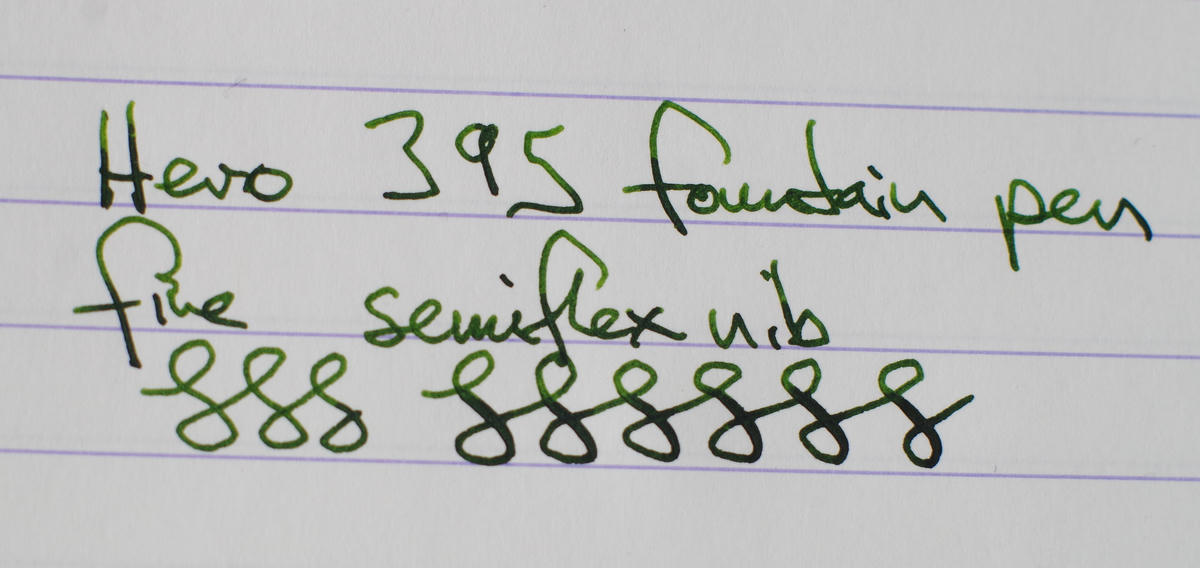 Hero 395 fountain pen
fine semiflex nib